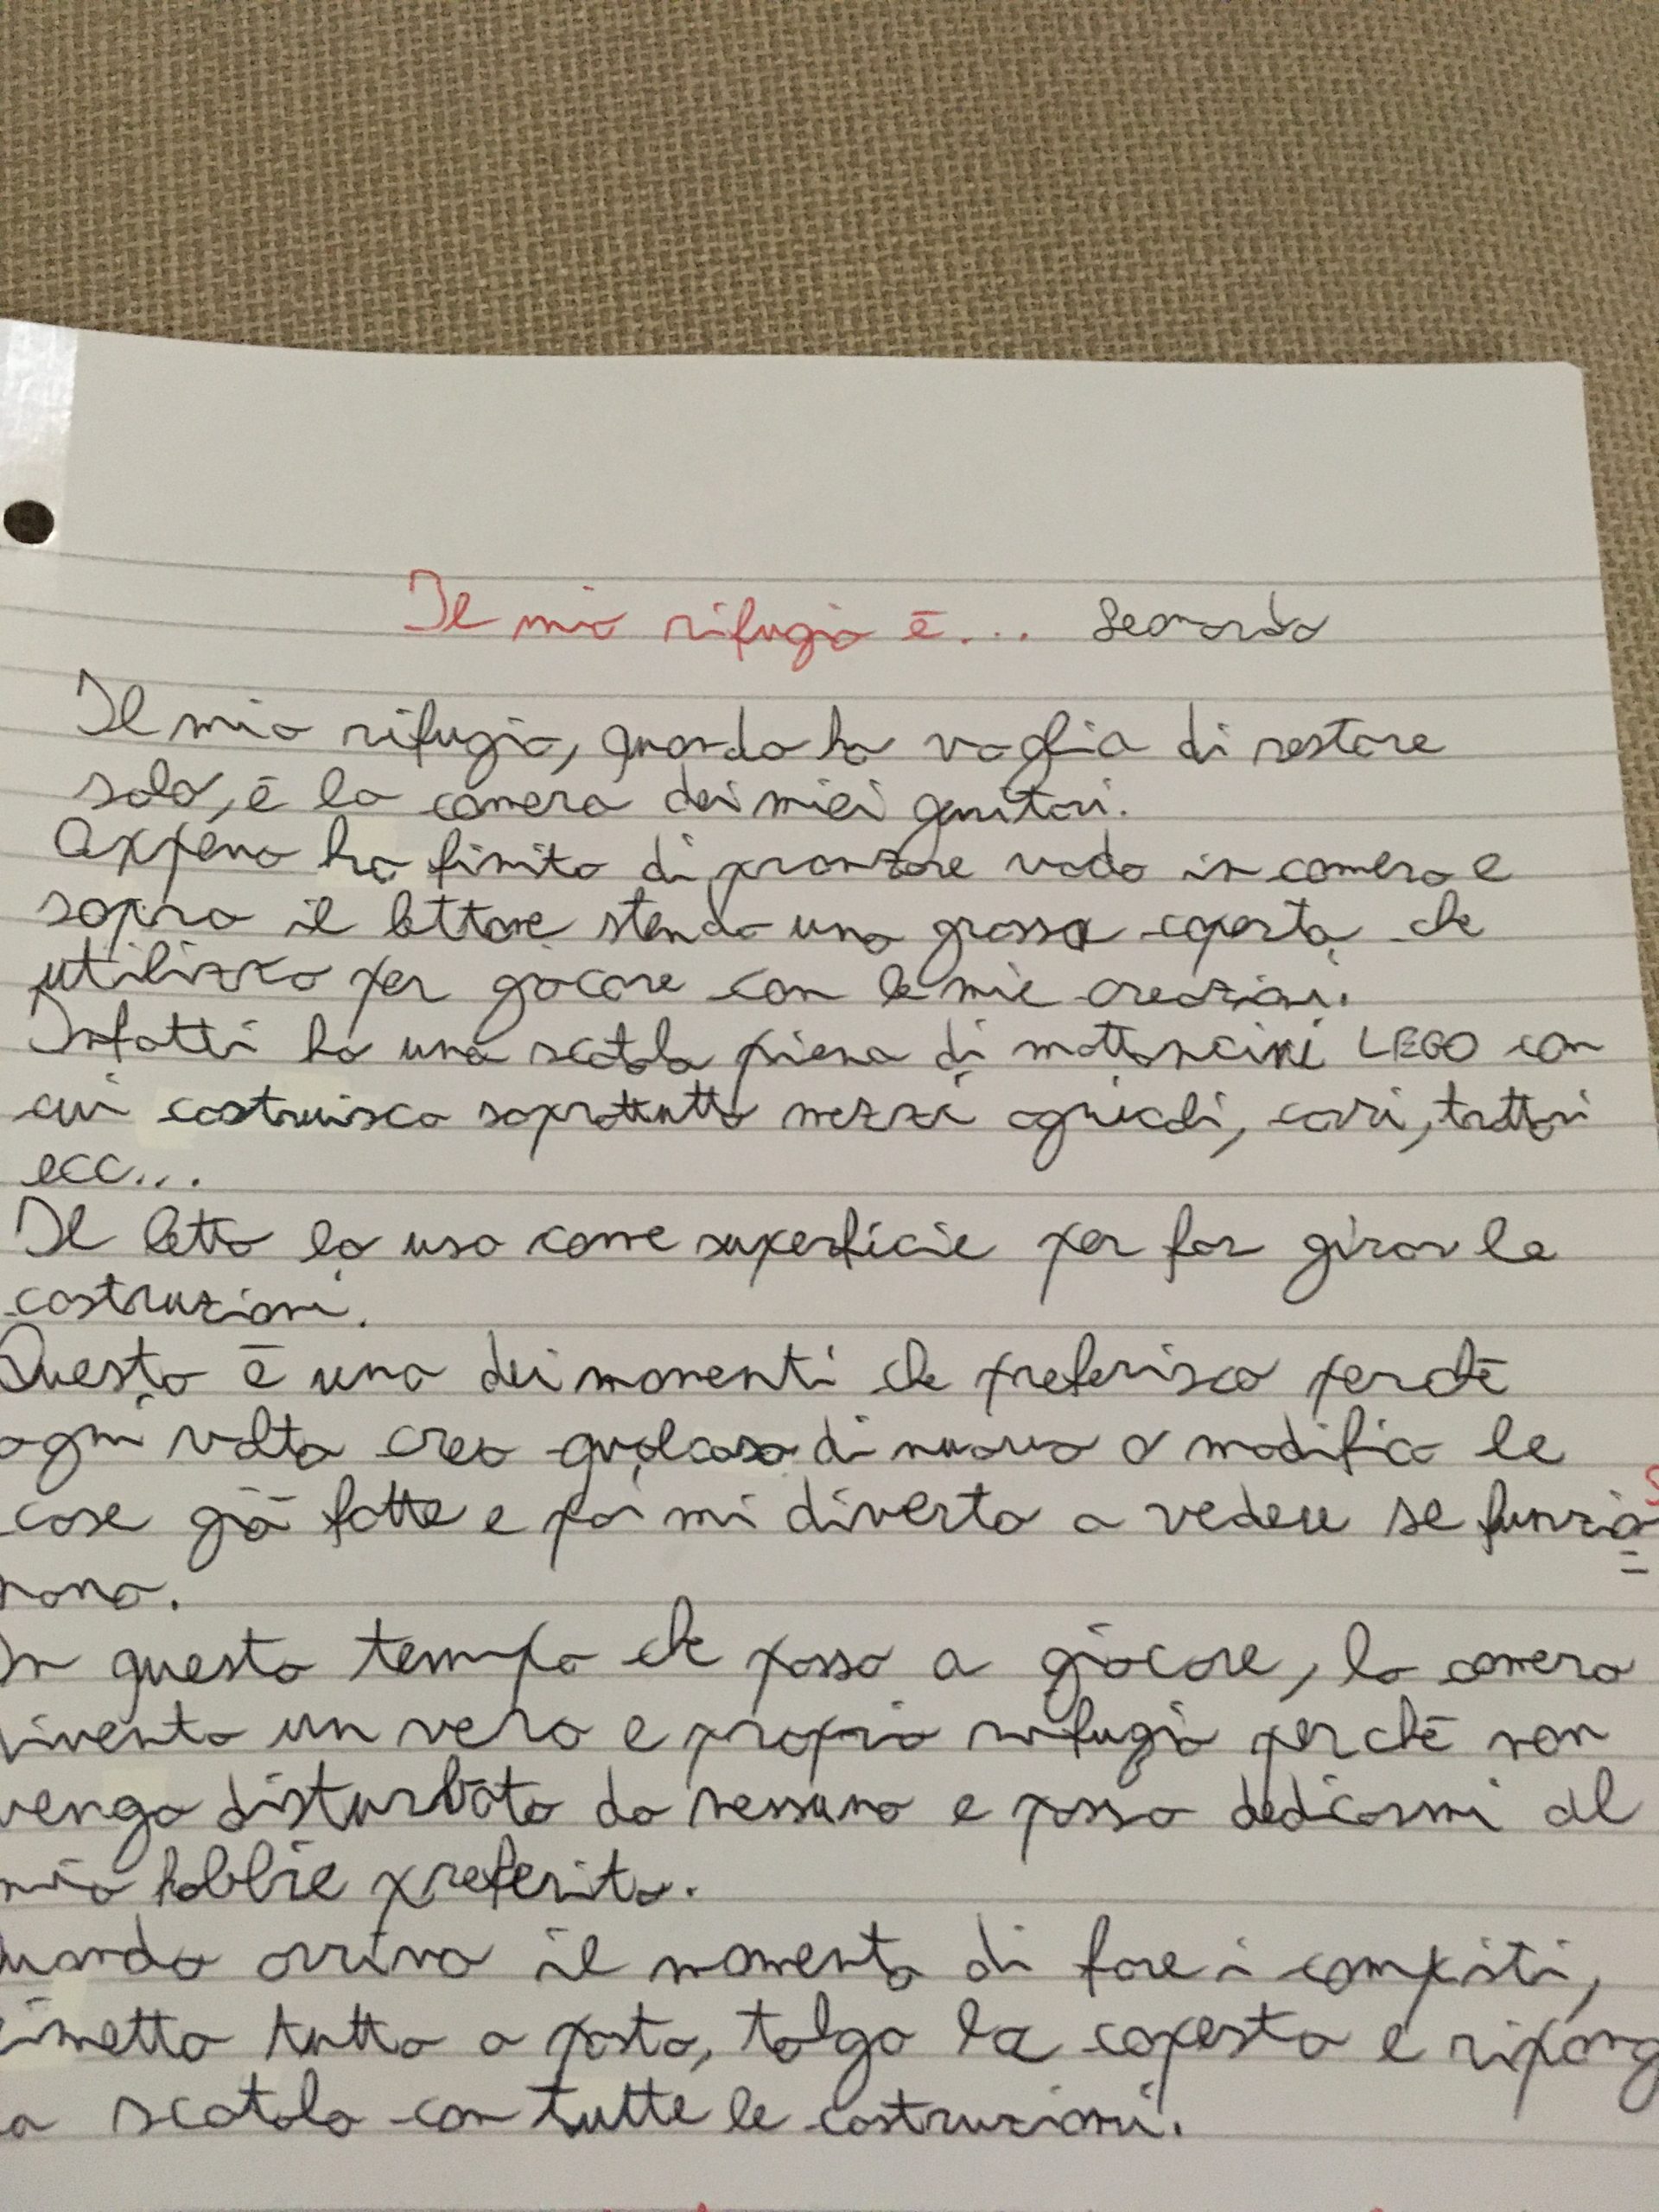 Il mio rifugio è... Leonardo
Il mio rifugio, quando ho voglia di restare
solo, è la camera dei miei genitori.
Appena ho finito di pranzare vado in camera e
sopra il lettone stendo una grossa coperta che
utilizzo per giocare con le mie creazioni.
Infatti ho una scatola piena di mattoncini LEGO con
cui costruisco soprattutto mezzi agricoli, carri, trattori
ecc...
Il letto lo uso come superficie per far girar le
costruzioni.
Questo è uno dei momenti che preferisco perchè
ogni volta creo qualcosa di nuovo o modifico le
cose già fatte e poi mi diverto a vedere se funzio
nano.
In questo tempo che passo a giocare, la camera
diventa un vero e proprio rifugio perchè non
vengo disturbato da nessuno e posso dedicarmi al
mio hobbie preferito.
Quando arriva il momento di fare i compiti,
rimetto tutto a posto, tolgo la coperta e ripong
la scatola con tutte le costruzioni.